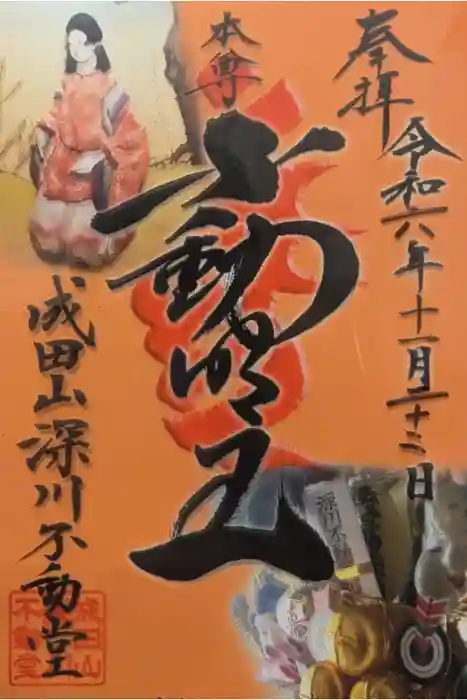 奉拝
令和六年十一月二十二日
本尊
不動明王
成田山深川不動堂
成田山
不動堂
深川不動